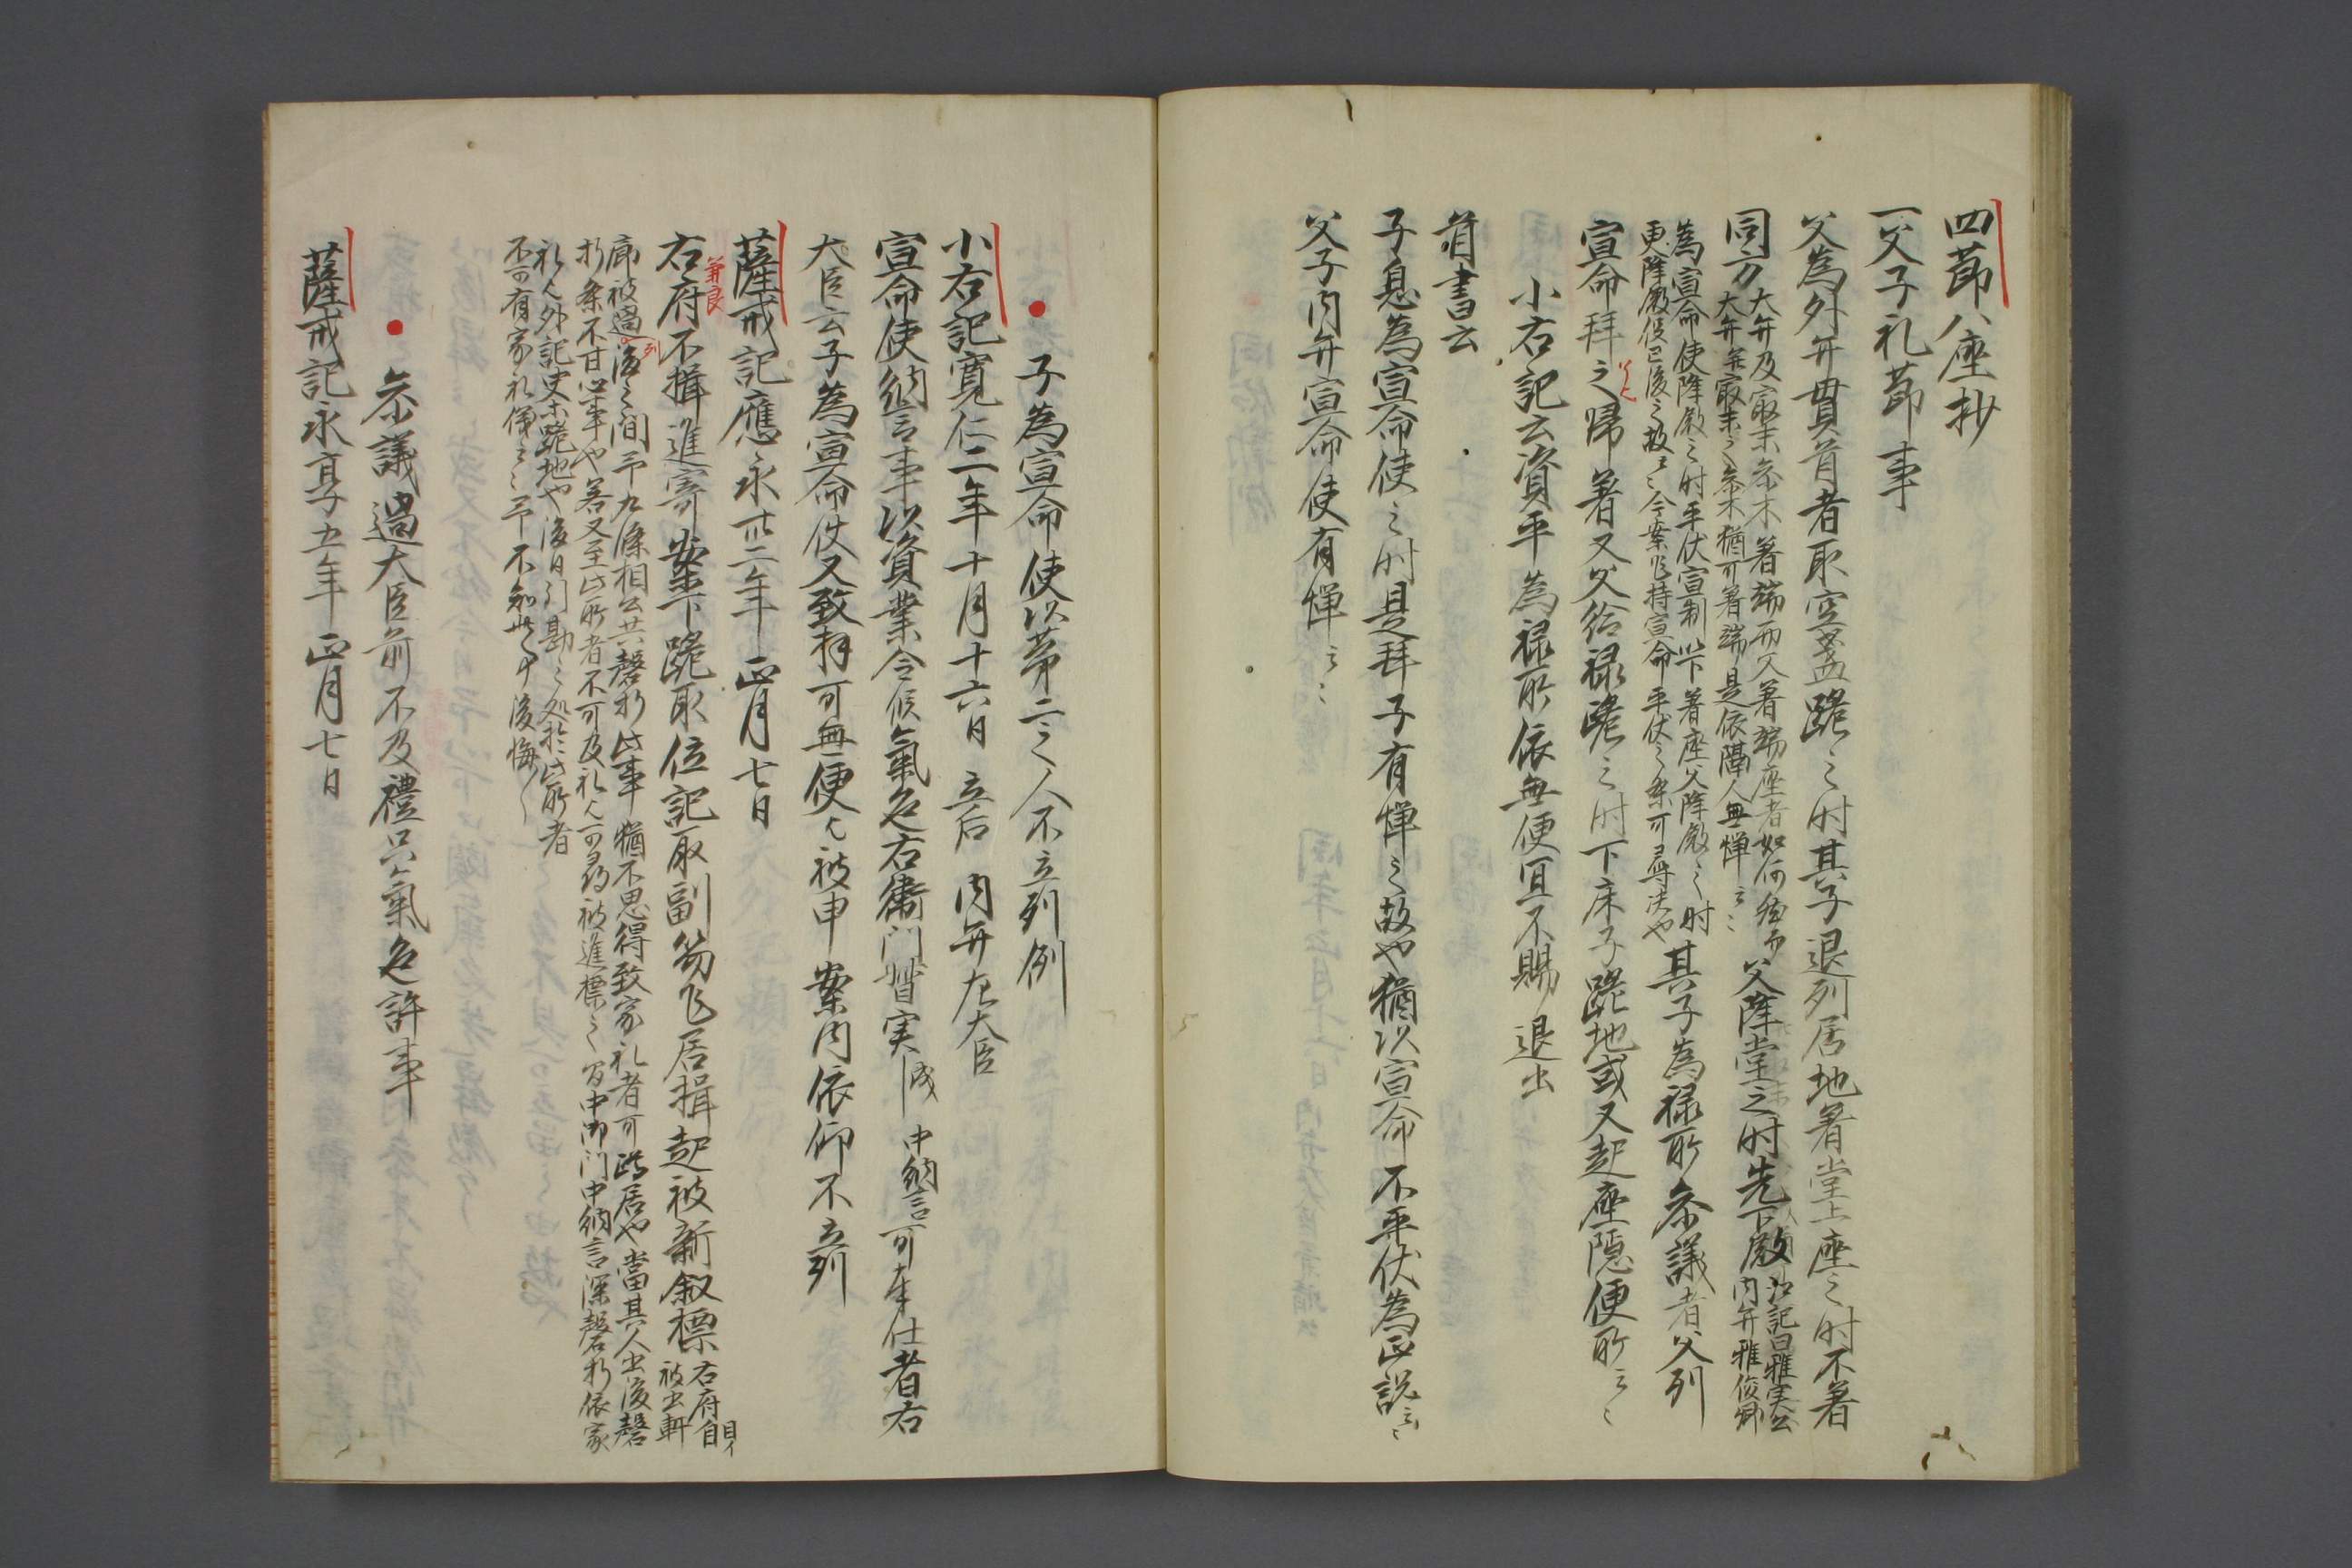 四節八座抄
一父子礼節事
父為外弁貫首者取空盞跪之時其子退列居地著堂上座之時不著
同方
大弁及最末参木著端而又著端座者如何
大弁并最末之参木猶可著端是依隔人無憚云々
父降堂之時先下殿
江記曰雅実公
内弁雅俊卿
為宣命使降殿之時平伏宣制以下著座父降殿之時
更降殿役已後之故云々今案乍持宣命平伏之条可尋決也
其子為禄所参議者父列
宣命拝之帰著又父給禄跪之時下床子跪地或又起座隠便所云々
小右記云資平為禄所依無便冝不賜退出
有書云
子息為宣命使之時是拜子有憚之故也猶以宣命不平伏為正説云々
父子内弁宣命使有憚云々
子為宣命使以第二之人不立列例
小右記寛仁二年十月十六日 立后 内弁左大臣
宣命使納言事以資業令候氣色右衛門督実成 中納言可奉仕者右
大臣云子為宣命使父致拜可無便之被申案内依仰不立列
薩戒記應永卅二年正月七日
兼良
右府不揖進寄案下跪取位記取副笏乍居揖起被新叙標
右府自
被出軒
廊被過後之間予九條相公共磬折此事猶不思得致家礼者可蹲居也當其人出後磬
列
折条不甘心事也若又至此所者不可及礼之可尋被進標之間中御門中納言深磬折依家
礼人外記史等跪地也後日引勘之処於此所者
不可有家礼儀云々予不知此事後悔々々
参議過大臣前不及禮只氣色許事
薩戒記永享五年正月七日